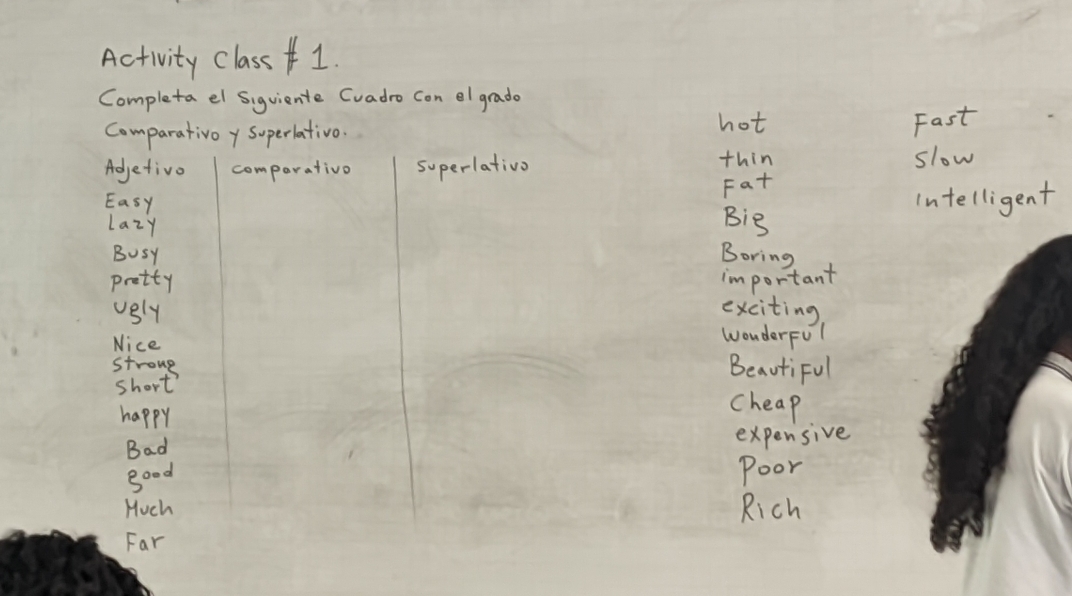 Activity Class # 1.
Completa el siguiente Cuadro con el grado
Comparativo y superlativo.
Adjetivo comparativo superlativo
Easy
lazy
Busy
pretty
ugly
Nice
strong
short
happy
Bad
good
Much
Far
hot
thin
Fat
Big
Boring
important
exciting
wonderful
Beautiful
Cheap
expensive
Poor
Rich
Fast
Slow
intelligent